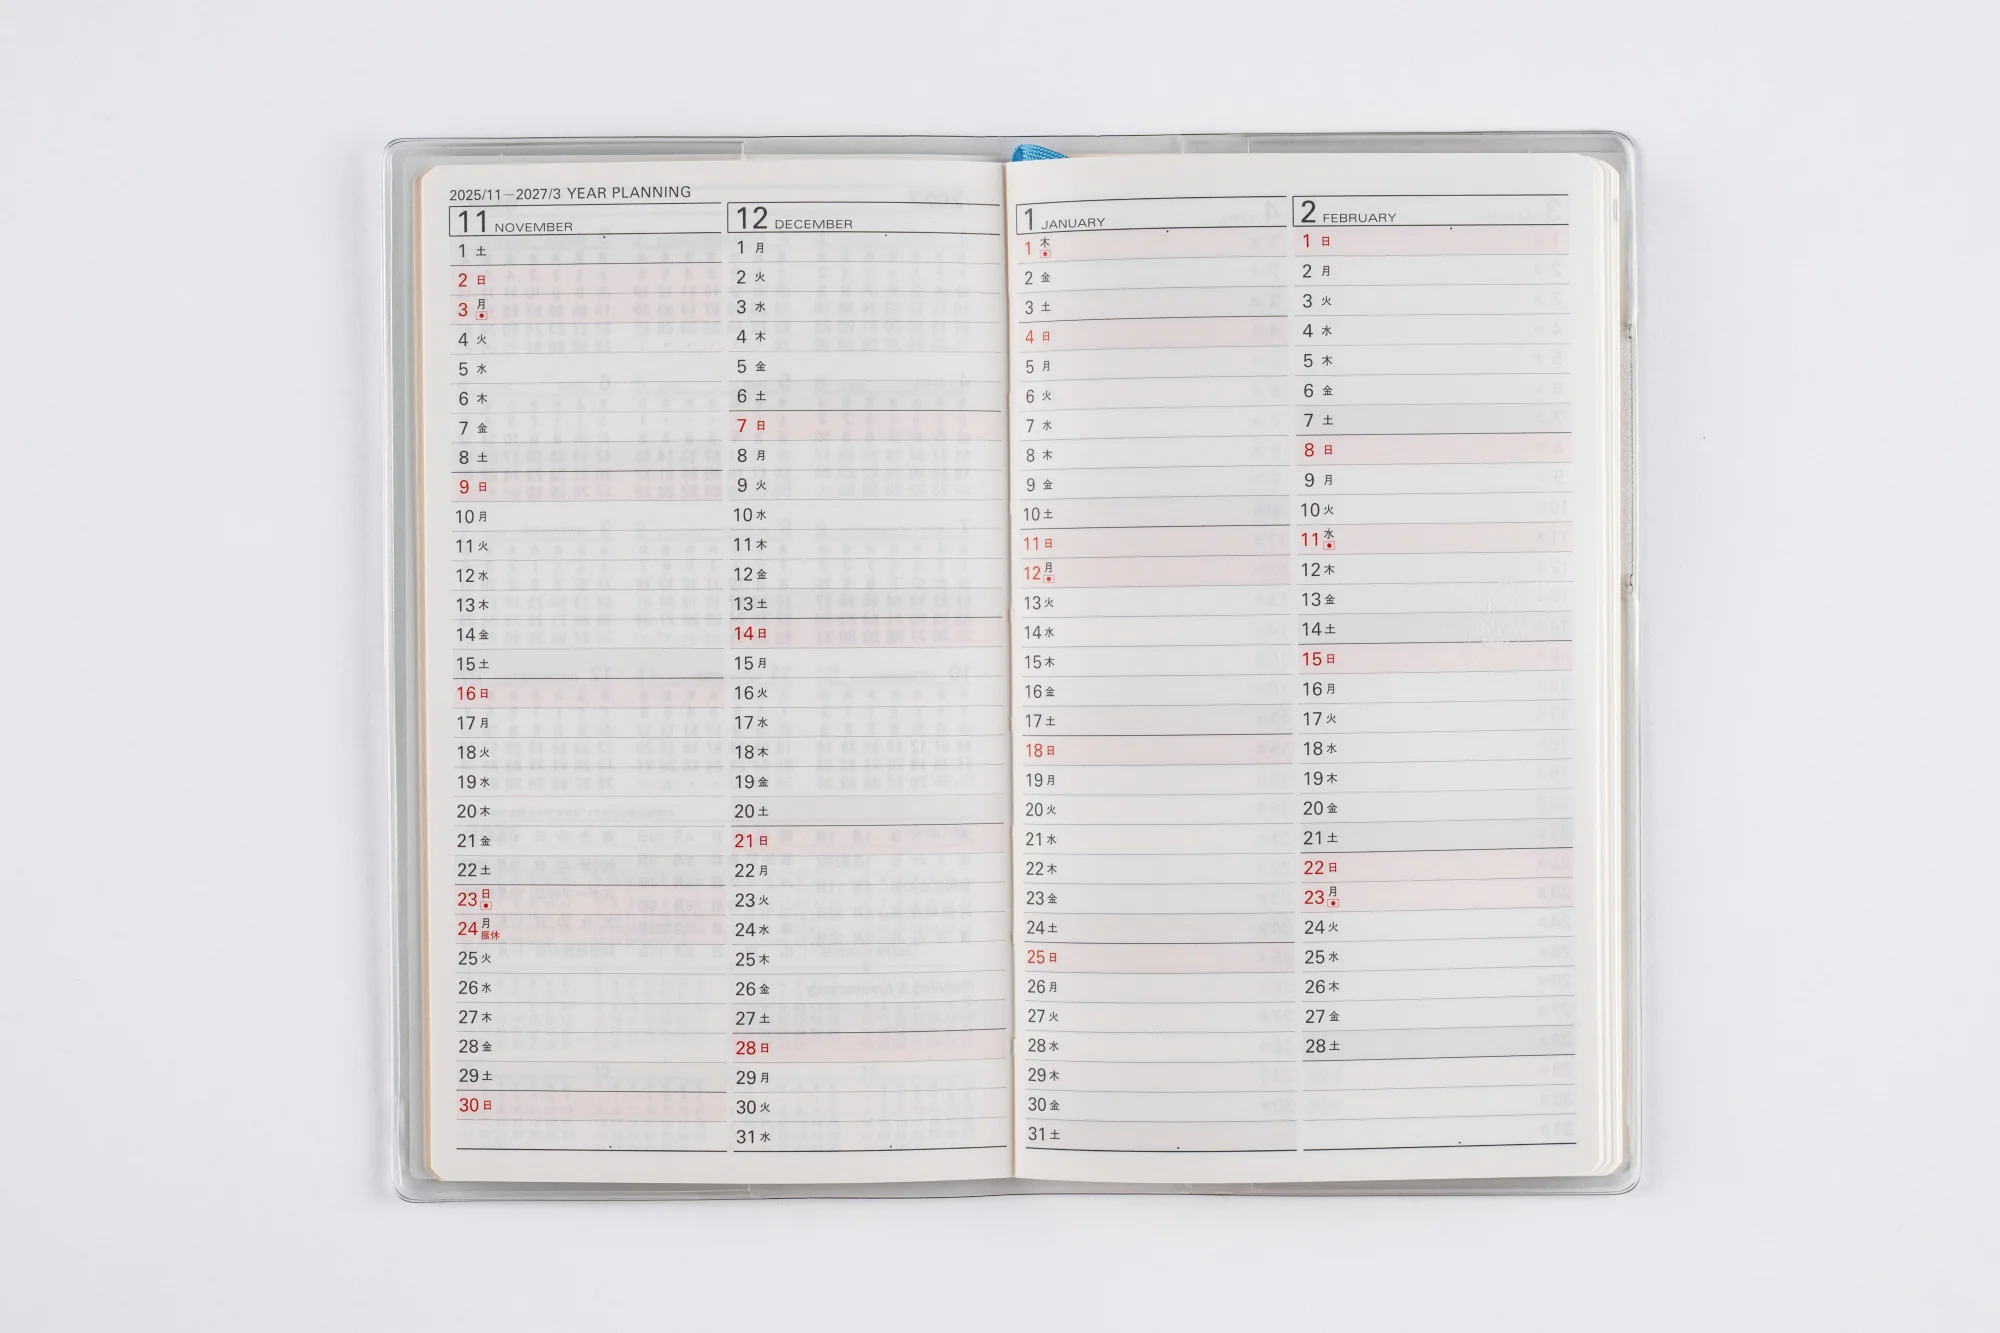 2025/11—2027/3 YEAR PLANNING
11 NOVEMBER
1 土
2 日
3 月
4 火
5 水
6 木
7 金
8 土
9 日
10 月
11 火
12 水
13 木
14 金
15 土
16 日
17 月
18 火
19 水
20 木
21 金
22 土
23 日
24 月 振休
25 火
26 水
27 木
28 金
29 土
30 日
12 DECEMBER
1 月
2 火
3 水
4 木
5 金
6 土
7 日
8 月
9 火
10 水
11 木
12 金
13 土
14 日
15 月
16 火
17 水
18 木
19 金
20 土
21 日
22 月
23 火
24 水
25 木
26 金
27 土
28 日
29 月
30 火
31 水
1 JANUARY
1 木
2 金
3 土
4 日
5 月
6 火
7 水
8 木
9 金
10 土
11 日
12 月
13 火
14 水
15 木
16 金
17 土
18 日
19 月
20 火
21 水
22 木
23 金
24 土
25 日
26 月
27 火
28 水
29 木
30 金
31 土
2 FEBRUARY
1 日
2 月
3 火
4 水
5 木
6 金
7 土
8 日
9 月
10 火
11 水
12 木
13 金
14 土
15 日
16 月
17 火
18 水
19 木
20 金
21 土
22 日
23 月
24 火
25 水
26 木
27 金
28 土